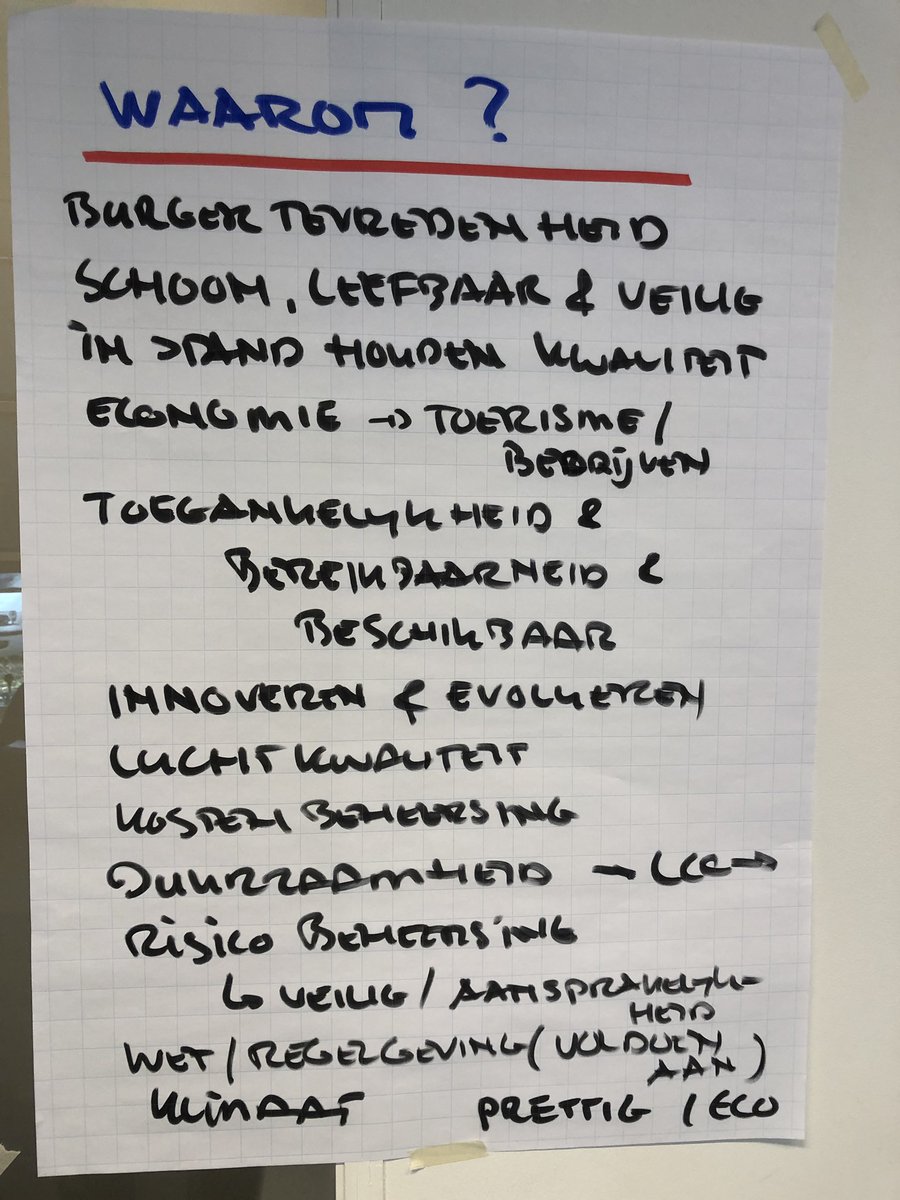 WAAROM ?
BURGER TEVREDENHEID
SCHOON, LEEFBAAR & VEILIG
IN STAND HOUDEN KWALITEIT
ECONOMIE → TOERISME /
BEDRIJVEN
TOEGANKELIJKHEID &
BEREIKBAARHEID &
BESCHIKBAAR
INNOVEREN & EVOLUEREN
LUCHT KWALITEIT
KOSTEN BEHEERSING
DUURZAAMHEID → LCC →
RISICO BEHEERSING
↳ VEILIG / AANSPRAKELIJK-
HEID
WET / REGELGEVING (VOLDOEN
AAN)
KLIMAAT PRETTIG / ECO